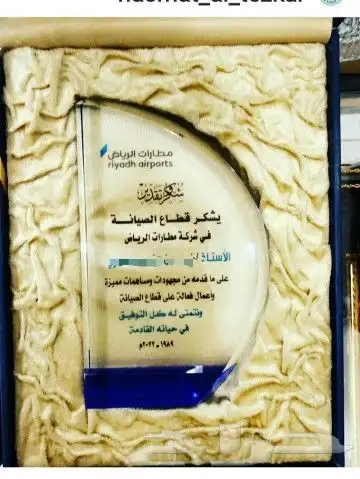 مطارات الرياض
riyadh airports
شكر وتقدير
يشكر قطاع الصيانة
في شركة مطارات الرياض
الأستاذ
على ما قدمه من مجهودات ومساهمات مميزة
وأعمال فعالة على قطاع الصيانة
ونتمنى له كل التوفيق
في حياته القادمة
١٩٨٩ - ٢٠٢٢م
حراج